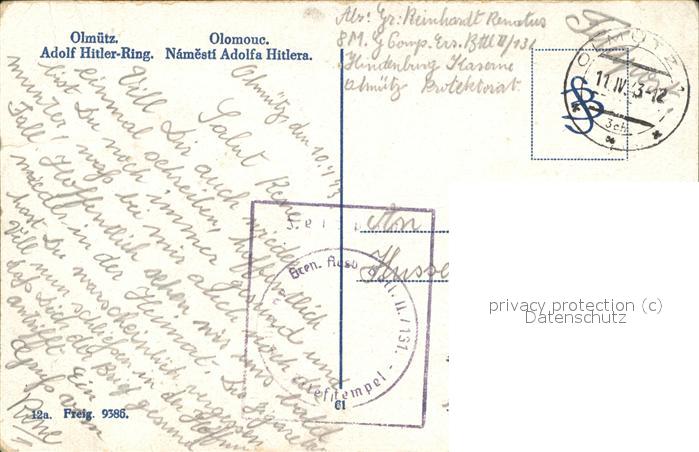 Olmütz.
Adolf Hitler-Ring.
Olomouc.
Náměstí Adolfa Hitlera.
Abs: Gr. Reinhardt Renatus
8 M. G Comp. Ers. Btll II/131
Hindenburg Kaserne
Olmütz Protektorat
Feldpost
OLMÜTZ 1
11. IV. 43-12
Olmütz den 10.4.43
Salut Rene
Will Dir auch
einmal schreiben, hoffentlich
bist Du noch immer gesund und
munter, waß bei mir auch noch der
Fall. Hoffentlich sehen mir uns bald
wieder in der Heimat. Die Zigaretten
hast Du warscheinlich vergessen
will nun schließen in der Hoffnung
daß Dich der Brief gesund
antrifft. Ein
Gruß von
Rene
An
Husse
Gren. Ausb. Batl. II./131.
Briefstempel
privacy protection (c)
Datenschutz
12a. Freig. 9386.
61